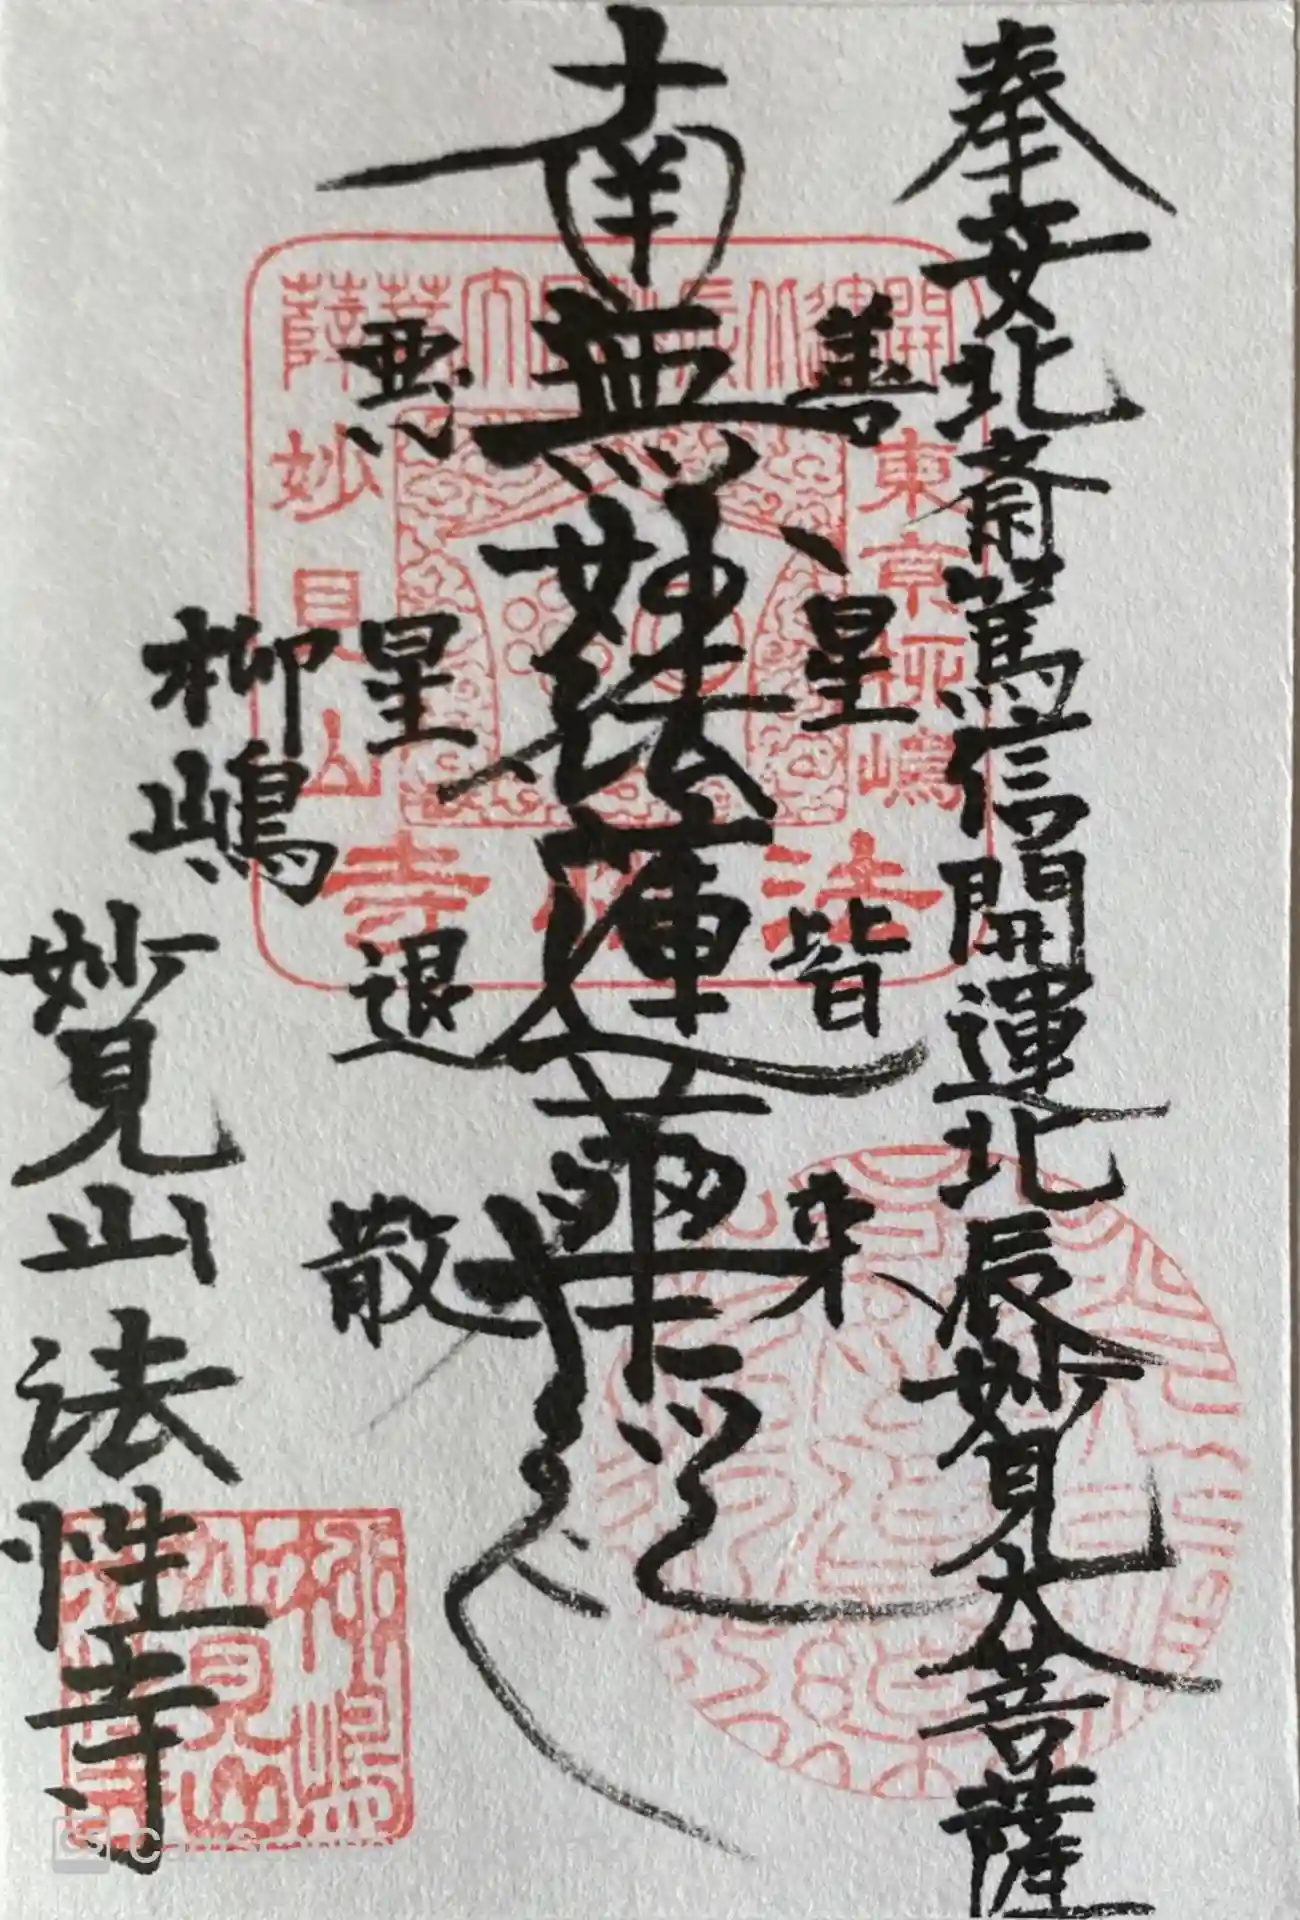 奉安北斎篤信開運北辰妙見大菩薩
善星皆来
南無妙法蓮華経
悪星退散
柳嶋
妙見山法性寺
開運北辰妙見大菩薩
東京柳嶋
妙見山
法性寺
柳嶋
妙見山
法性寺
CS CamSc